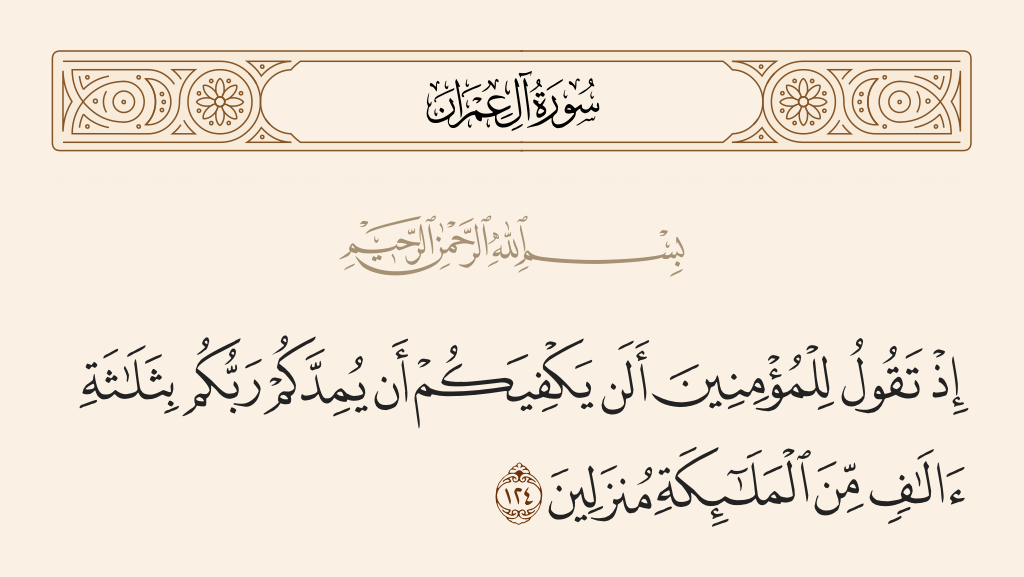 سُورَةُ آلِ عِمْرَانَ
بِسْمِ ٱللَّهِ ٱلرَّحْمَٰنِ ٱلرَّحِيمِ
إِذْ تَقُولُ لِلْمُؤْمِنِينَ أَلَن يَكْفِيَكُمْ أَن يُمِدَّكُمْ رَبُّكُم بِثَلَٰثَةِ
ءَالَٰفٍ مِّنَ ٱلْمَلَٰٓئِكَةِ مُنزَلِينَ ١٢٤